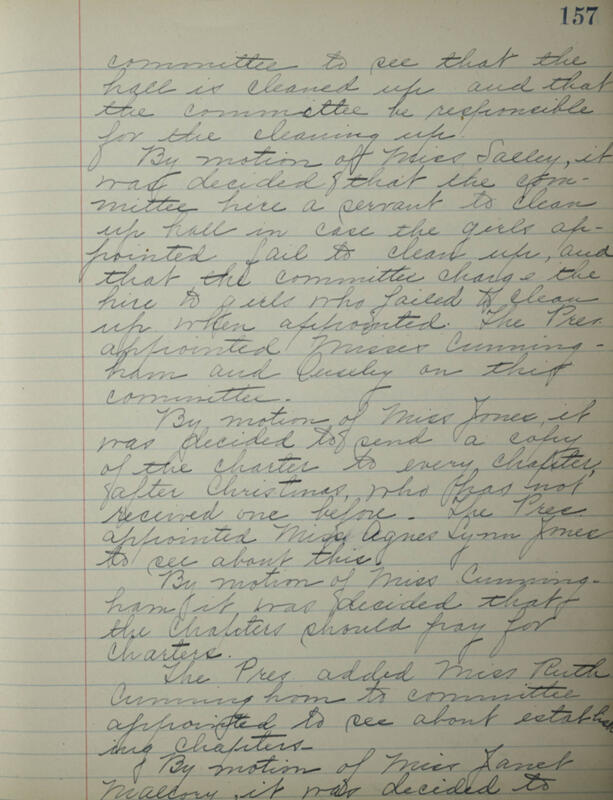 157
committee to see that the
hall is cleaned up and that
the committee be responsible
for the cleaning up.
By motion of Miss Salley, it
was decided that the com-
mittee hire a servant to clean
up hall in case the girls ap-
pointed fail to clean up, and
that the committee charge the
hire to girls who failed to clean
up when appointed. The Pres
appointed Misses Cunning-
ham and on this
committee.
By motion of Miss Jones, it
was decided to send a copy
of the charter to every chapter,
after Christmas, who has not
received one before. The Pres
appointed Miss Agnes Lynn Jones
to see about this.
By motion of Miss Cunning-
ham it was decided that
the Chapters should pay for
charters.
The Pres added Miss Ruth
Cunningham to committee
appointed to see about establish
ing chapters.
By motion of Miss Janet
Mallory, it was decided to